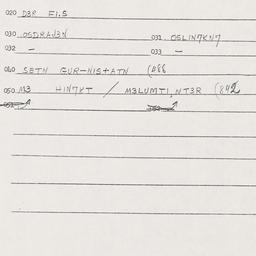 020 D3R FI.S
030 OSDRAN3N 031 OSLIN7KN7
032 — 033 —
040 SETN GUR-NIS+ATN (088
050 M3 HIN7KT / M3LUMTI, NT3R (842